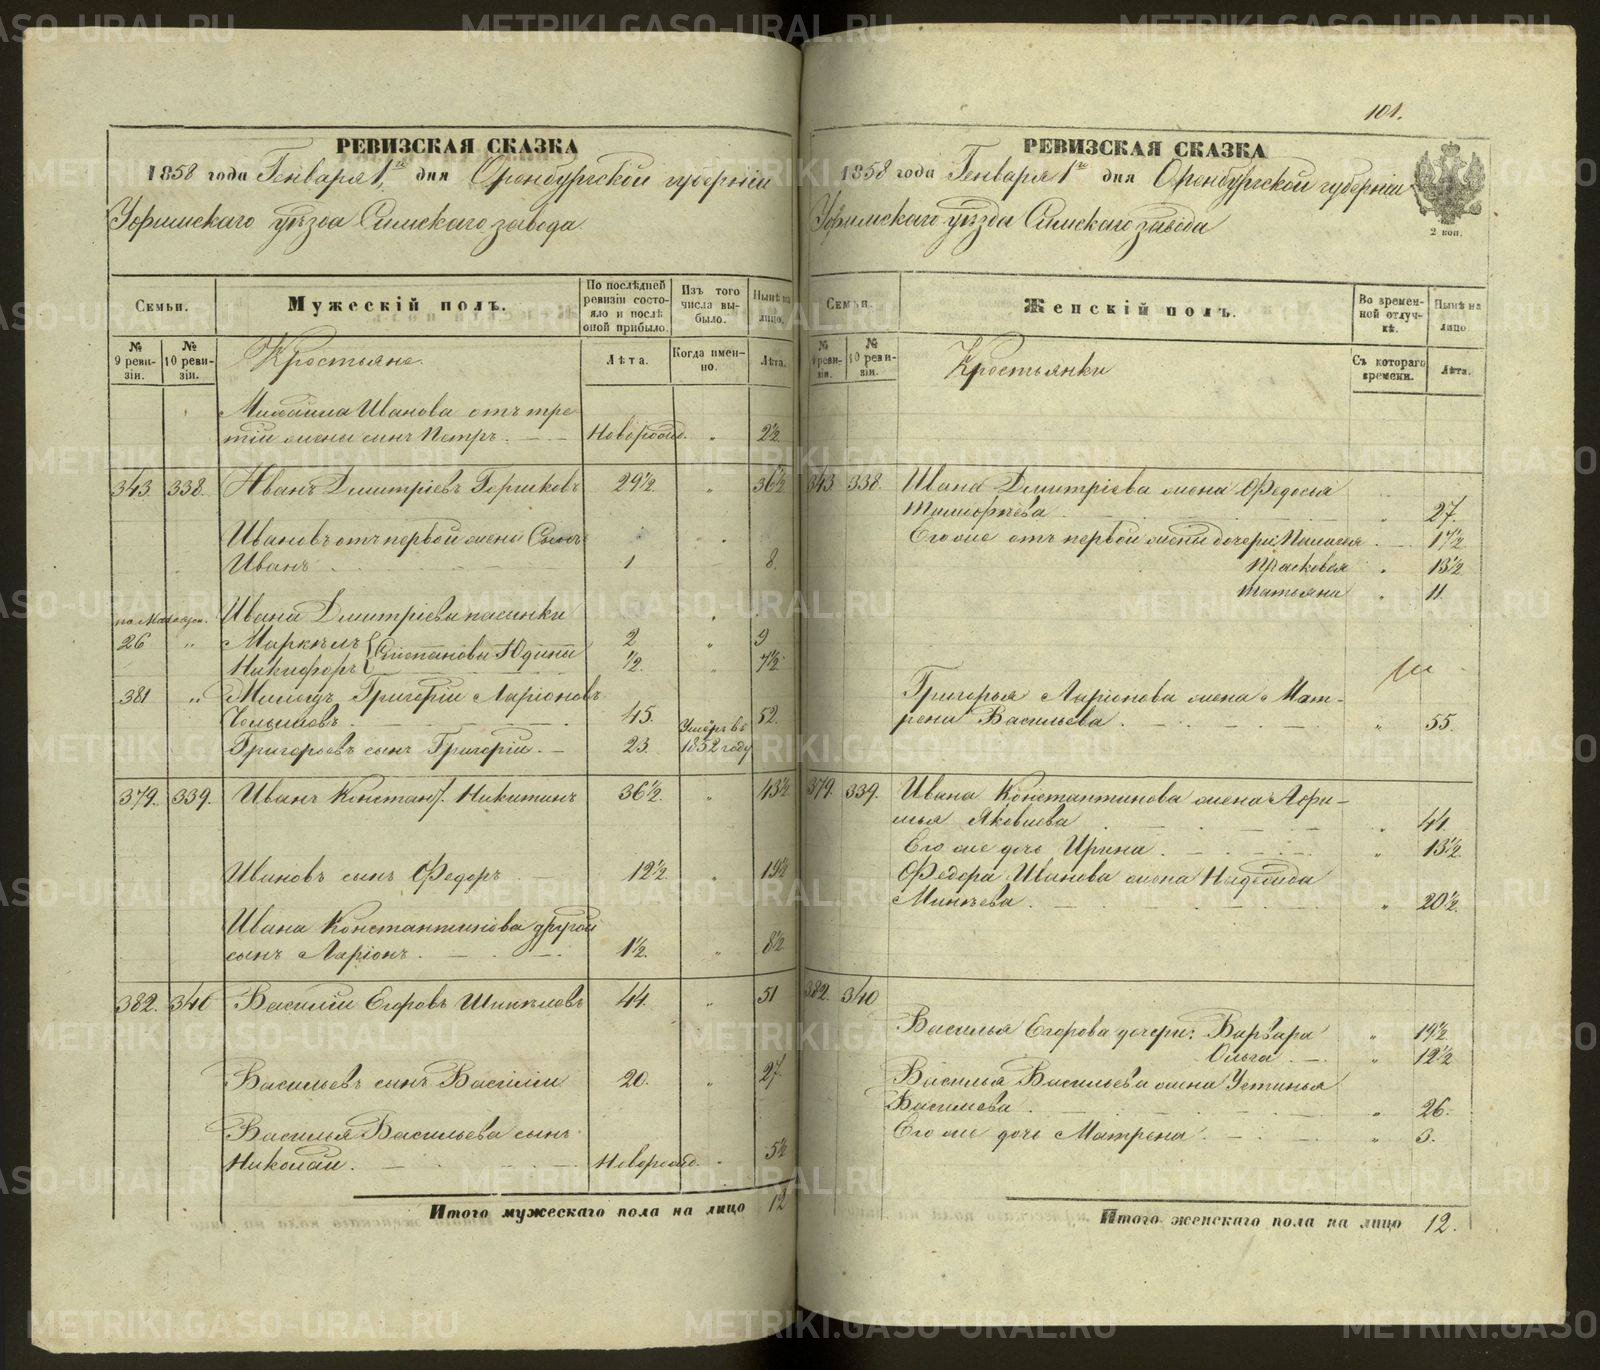 РЕВИЗСКАЯ СКАЗКА
1858 года Генваря 1го дня Оренбургской губернии
Уфимскаго уѣзда Симскаго завода
Семьи.
Мужескій полъ.
По послѣдней ревизіи состояло и послѣ оной прибыло.
Изъ того числа выбыло.
Нынѣ на лицо.
№ 9 ревизіи.
№ 10 ревизіи.
Крестьяне.
Лѣта.
Когда именно.
Лѣта.
Михаила Иванова отъ тре
тій жены сынъ Петръ. Новорожд. " 2½
343. 338. Иванъ Дмитріевъ Горшковъ 29½ " 36½
Ивановъ отъ первой жены Сынъ
Иванъ 1 8.
Ивана Дмитріева пасынки
26 " Маркелъ { Степановы Юдины 2 " 9
Никифоръ { ½. " 7½
381 " Григорій Ларіоновъ
45. 52.
Григорьевъ сынъ Григорій. 23. Умеръ въ 1852 году
379. 339. Иванъ Констант. Никитинъ 36½. " 43½
Ивановъ сынъ Федоръ 12½. " 19½
Ивана Константинова другой
сынъ Ларіонъ. 1½. " 8½
382. 340 Василій Егоровъ 44. " 51
Васильевъ сынъ Василій 20. " 27.
Василья Васильева сынъ
Николай. Новорожд. " 5½
Итого мужескаго пола на лицо 12
101.
РЕВИЗСКАЯ СКАЗКА
1858 года Генваря 1го дня Оренбургской губерніи
Уфимскаго уѣзда Симскаго завода
2 коп.
Семьи.
Женскій полъ.
Во временной отлучкѣ.
Нынѣ на лицо
№ 9 ревизіи.
№ 10 ревизіи.
Крестьянки
Съ котораго времени.
Лѣта.
343. 338. Ивана Дмитріева жена Федосья
Тимофѣева " 27.
Его же отъ первой жены дочери: Пелагея " 17½
Прасковья " 13½
Татьяна " 11.
Григорья Ларіонова жена Мат-
рена Васильева. " 55.
379. 339. Ивана Константинова жена Афи-
мья Яковлева " 41.
Его же дочь Ирина. " 13½.
Федора Иванова жена Надежда
Минѣева. " 20½.
382. 340
Василья Егорова дочери: Варвара " 19½.
Ольга. " 12½
Василья Васильева жена Устинья
" 26.
Его же дочь Матрена. " 3.
Итого женскаго пола на лицо 12.
METRIKI.GASO-URAL.RU